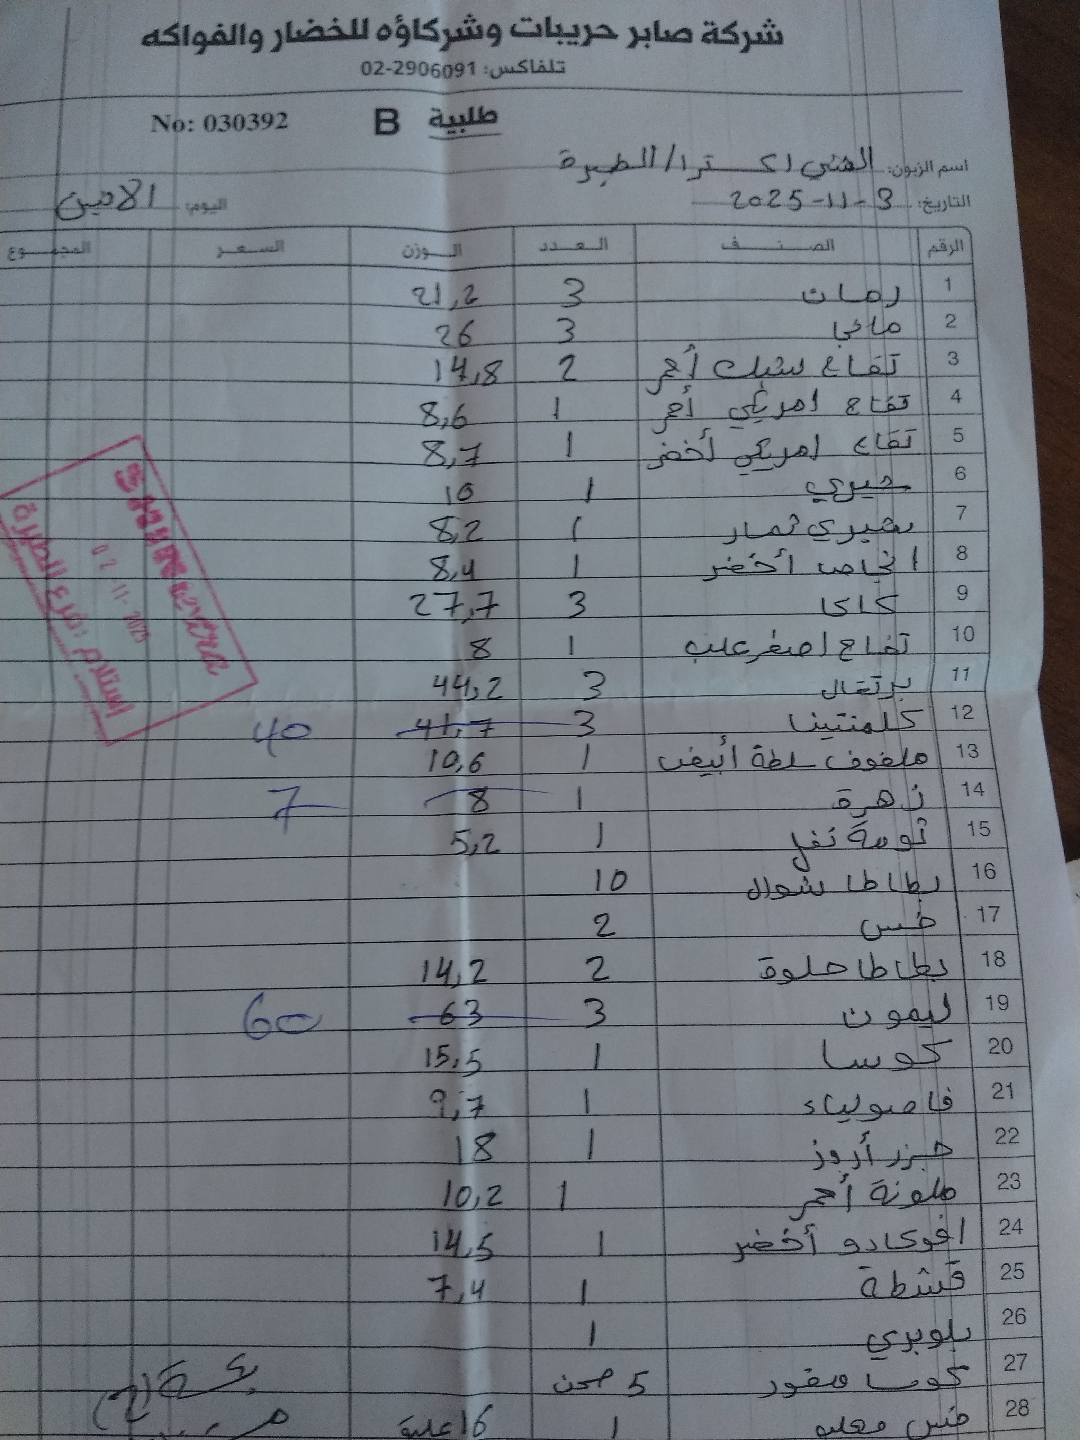 شركة صابر حريبات وشركاؤه للخضار والفواكه
تلفاكس: 02-2906091
No: 030392 B طلبية
اسم الزبون: الهني اكسترا/الطيرة
التاريخ: 3-11-2025 اليوم: الاثنين
الرقم الصنف العدد الوزن السعر المجموع
1 رمان 3 21,2
2 مانجا 3 26
3 تفاح سنبك أحمر 2 14,8
4 تفاح امريكي أحمر 1 8,6
5 تفاح امريكي أخضر 1 8,7
6 جيري 1 10
7 شيري ثمار 1 8,2
8 انجاص أخضر 1 8,4
9 كاكا 3 27,7
10 تفاح اصفر علب 1 8
11 برتقال 3 44,2
12 كلمنتينا 3 41,7 40
13 ملفوف سلطة أبيض 1 10,6
14 زهرة 1 8 7
15 ثومة تفل 1 5,2
16 بطاطا شوال 10
17 خس 2
18 بطاطا حلوة 2 14,2
19 ليمون 3 63 60
20 كوسا 1 15,5
21 فاصولياء 1 9,7
22 جزر أروز 1 18
23 ملونة أحمر 1 10,2
24 افوكادو أخضر 1 14,5
25 قشطة 1 7,4
26 بلوبري 1
27 كوسا منقور 5 صحن
28 خس معلب 1 16 علبة
extra
02-11-2025
استلام فرع الطيرة